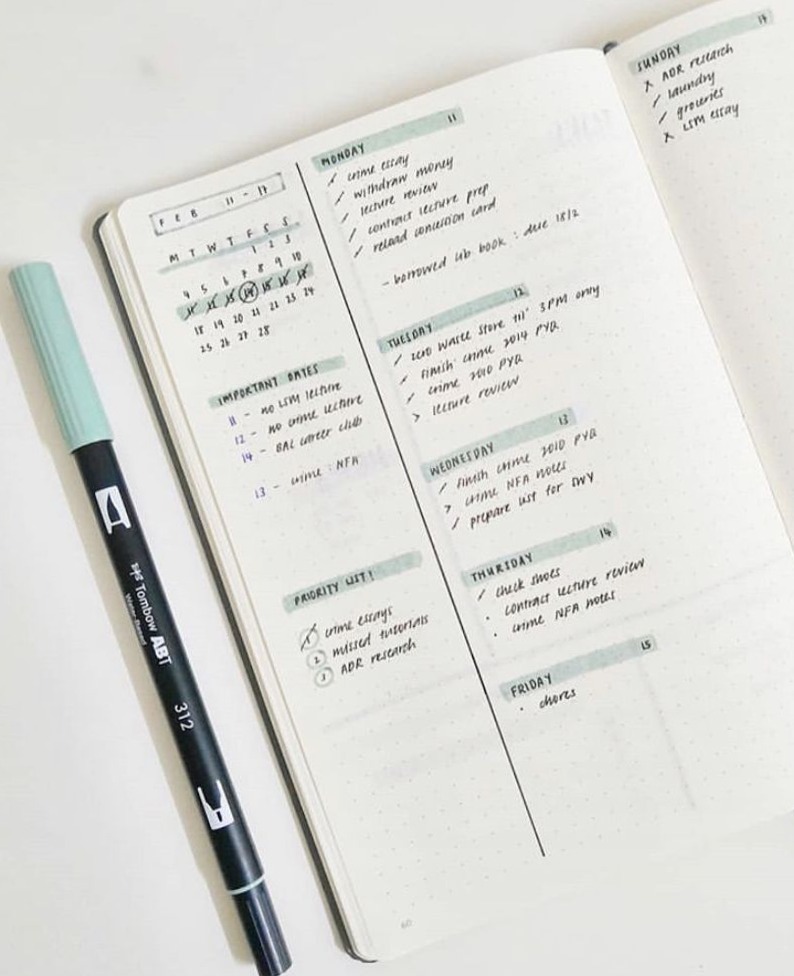 FEB 11 - 17
M T W T F S S
1 2 3
4 5 6 7 8 9 10
11 12 13 14 15 16 17
18 19 20 21 22 23 24
25 26 27 28
IMPORTANT DATES
11 - no LSM lecture
12 - no crime lecture
14 - BAC career club
13 - crime : NFA
PRIORITY LIST!
1 crime essays
2 missed tutorials
3 ADR research
60
MONDAY 11
/ crime essay
/ withdraw money
/ lecture review
/ contract lecture prep
/ reload concession card
- borrowed lib book : due 18/2
TUESDAY 12
/ zero waste store til' 3PM only
/ finish crime 2014 PYQ
/ crime 2010 PYQ
> lecture review
WEDNESDAY 13
/ finish crime 2010 PYQ
> crime NFA notes
/ prepare list for
THURSDAY 14
/ check shoes
· contract lecture review
· crime NFA notes
FRIDAY 15
· chores
SUNDAY 17
x ADR research
/ laundry
/ groceries
x LSM essay
Tombow ABT
Water-Based
312